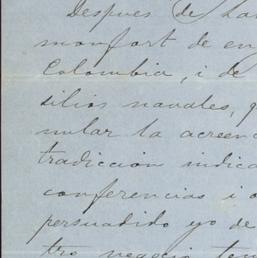 Despues de ha
monfort de en
Colombia, i de
silios navales, q
nular la acreen
tradiccion indica
conferencias i o
persuadido yo de
tro negocio ten